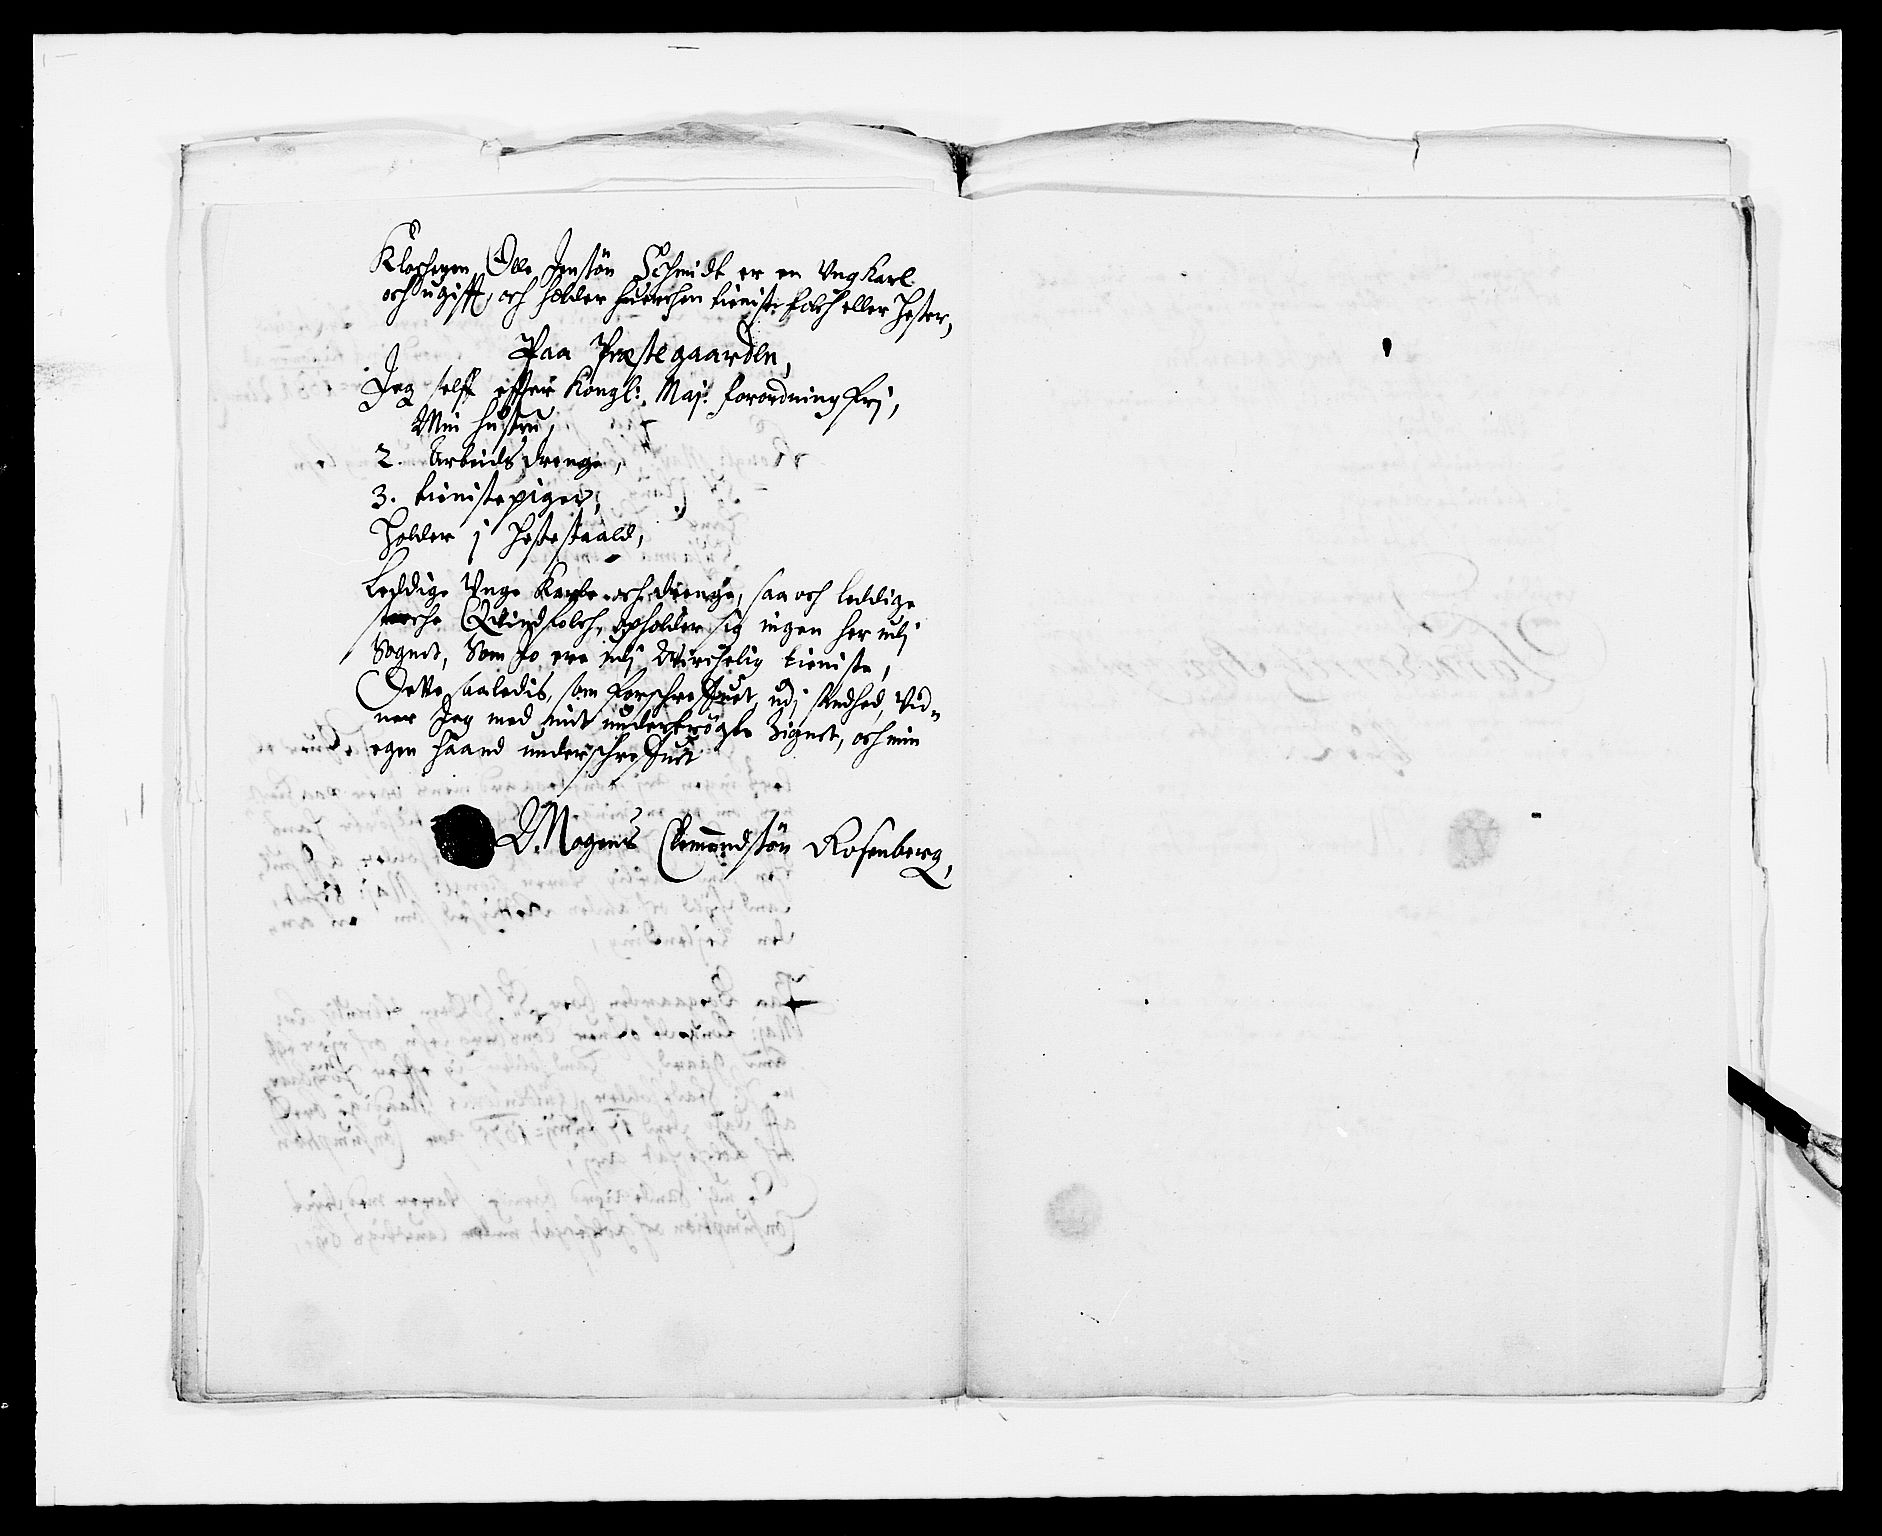 Klocheren Olle Jensøn Schmidt er en Ung Karl
och ugifft, och holder huerchen tieniste folch eller Hester,
Paa Præstegaarden,
Jeg self efter Kongl: Maj: forordning frj,
Min hustru,
2. Arbeids drenge,
3. tienistepiger,
Holder j Hestestaald,
Leddige Unge Karle och drenge, saa och leddige
sterche Qvindfolch, opholder sig ingen her udj
Sognet, Som Jo ere udj Wirchelig tieniste,
Dette saaledis, som forschreffuet, udj sandhed, Vid-
ner Jeg med mit undertrögte Zignet, och min
egen haand underschreffuet
Mogens Clemendsøn Rosenberg,